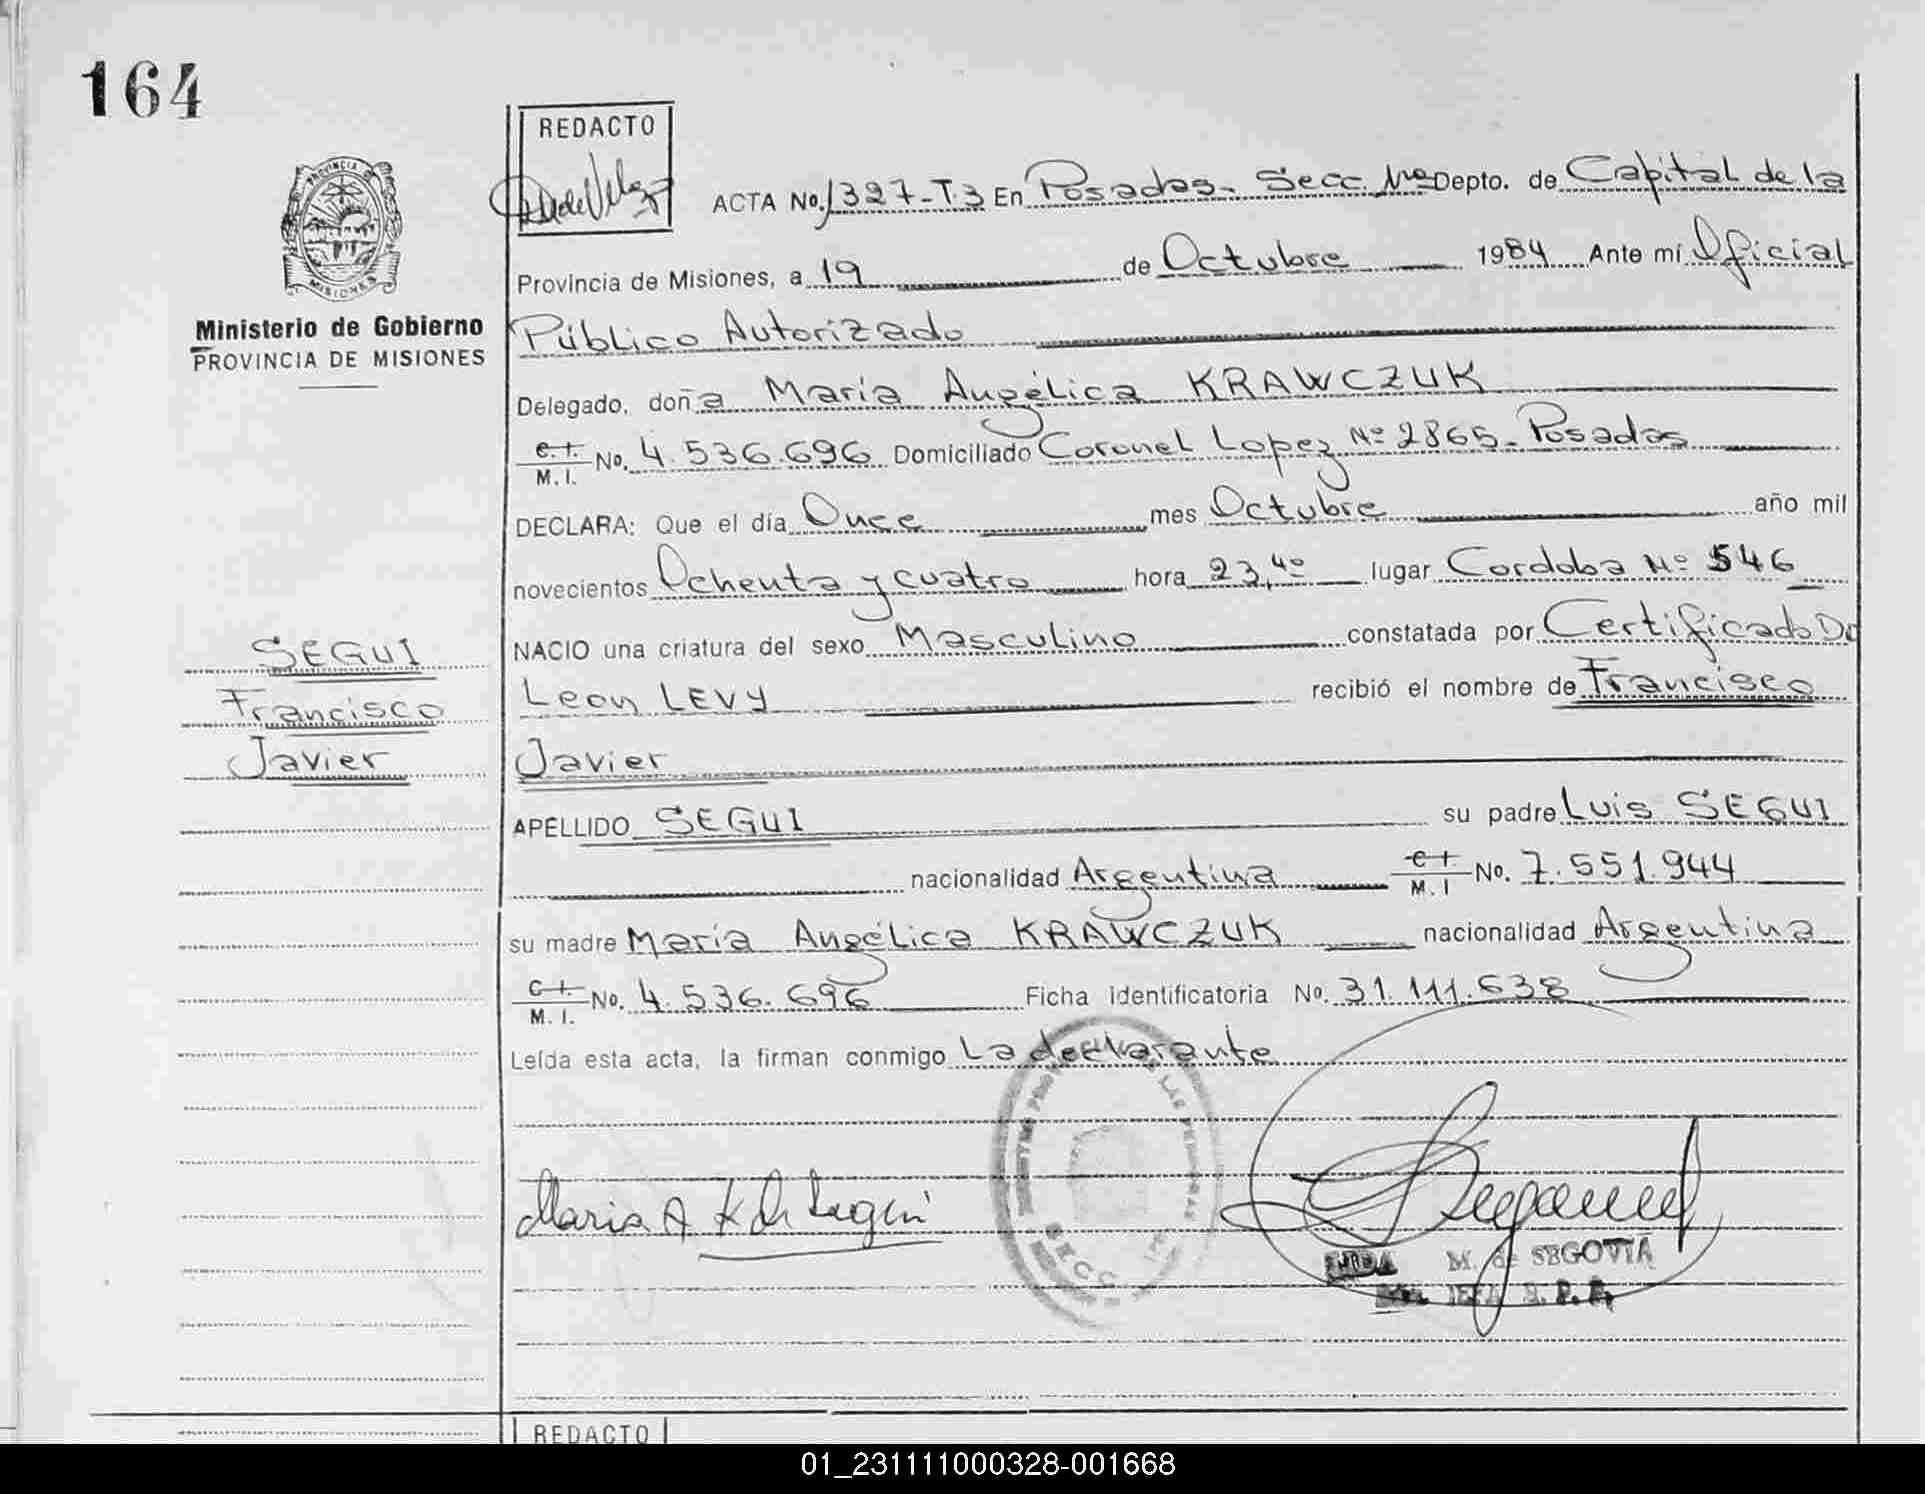 164
REDACTO
PROVINCIA DE
MISIONES
Ministerio de Gobierno
PROVINCIA DE MISIONES
ACTA No. 1327-T.3 En Posadas. Secc. 1ra Depto. de Capital de la
Provincia de Misiones, a 19 de Octubre 1984 Ante mí Oficial
Público Autorizado
Delegado, doña María Angélica KRAWCZUK
C.I. M.I. No. 4.536.696 Domiciliado Coronel Lopez Nº 2865. Posadas
DECLARA: Que el día Once mes Octubre año mil
novecientos Ochenta y cuatro hora 23,40 lugar Cordoba Nº 546
NACIO una criatura del sexo Masculino constatada por Certificado Dr
Leon LEVY recibió el nombre de Francisco
Javier
SEGUI
Francisco
Javier
APELLIDO SEGUI su padre Luis SEGUI
nacionalidad Argentina C.I. M.I No. 7.551.944
su madre María Angélica KRAWCZUK nacionalidad Argentina
C.I. M.I. No. 4.536.696 Ficha identificatoria No. 31.111.638
Leída esta acta, la firman conmigo La declarante
Maria A K de Segui
SECC
M. de SEGOVIA
JEFA R. P. P.
REDACTO
01_231111000328-001668